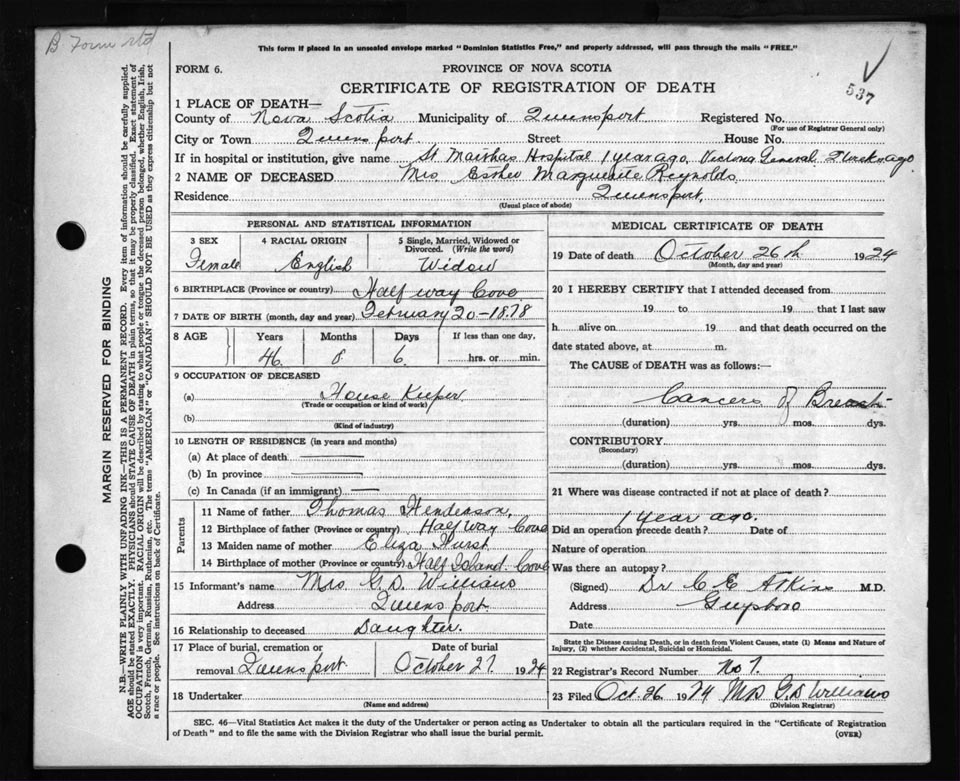 B Form rtd
This form if placed in an unsealed envelope marked "Dominion Statistics Free," and properly addressed, will pass through the mails "FREE."
FORM 6.
PROVINCE OF NOVA SCOTIA
537
CERTIFICATE OF REGISTRATION OF DEATH
1 PLACE OF DEATH—
County of Nova Scotia Municipality of Queensport Registered No.
(For use of Registrar General only)
City or Town Queens port Street House No.
If in hospital or institution, give name St Marthas Hospital 1 year ago, Victoria General 2 weeks ago
2 NAME OF DECEASED Mrs Esther Marguerite Reynolds
Residence Queensport,
(Usual place of abode)
PERSONAL AND STATISTICAL INFORMATION
3 SEX 4 RACIAL ORIGIN 5 Single, Married, Widowed or Divorced. (Write the word)
Female English Widow
6 BIRTHPLACE (Province or country) Half way Cove
7 DATE OF BIRTH (month, day and year) February 20-1878
8 AGE Years Months Days If less than one day,
46 8 6 hrs. or min.
9 OCCUPATION OF DECEASED
(a) House Keeper
(Trade or occupation or kind of work)
(b)
(Kind of industry)
10 LENGTH OF RESIDENCE (in years and months)
(a) At place of death
(b) In province
(c) In Canada (if an immigrant)
Parents
11 Name of father Thomas Henderson,
12 Birthplace of father (Province or country) Half Way Cove
13 Maiden name of mother Eliza Hurst
14 Birthplace of mother (Province or country) Half Island Cove
15 Informant's name Mrs G.D. Williams
Address Queens port
16 Relationship to deceased Daughter.
17 Place of burial, cremation or removal Queensport Date of burial October 27 1924
18 Undertaker
(Name and address)
MEDICAL CERTIFICATE OF DEATH
19 Date of death October 26th 1924
(Month, day and year)
20 I HEREBY CERTIFY that I attended deceased from
19 to 19 that I last saw
h alive on 19 and that death occurred on the
date stated above, at m.
The CAUSE of DEATH was as follows:—
Cancer of Breast
(duration) yrs. mos. dys.
CONTRIBUTORY
(Secondary)
(duration) yrs. mos. dys.
21 Where was disease contracted if not at place of death?
1 year ago.
Did an operation precede death? Date of
Nature of operation
Was there an autopsy?
(Signed) Dr C E Atkins M.D.
Address Guysboro
Date
State the Disease causing Death, or in death from Violent Causes, state (1) Means and Nature of Injury, (2) whether Accidental, Suicidal or Homicidal.
22 Registrar's Record Number No 7.
23 Filed Oct. 26 1924 Mrs G D Williams
(Division Registrar)
SEC. 46—Vital Statistics Act makes it the duty of the Undertaker or person acting as Undertaker to obtain all the particulars required in the "Certificate of Registration
of Death" and to file the same with the Division Registrar who shall issue the burial permit.
(OVER)
MARGIN RESERVED FOR BINDING
N.B.—WRITE PLAINLY WITH UNFADING INK—THIS IS A PERMANENT RECORD. Every item of information should be carefully supplied.
AGE should be stated EXACTLY. PHYSICIANS should STATE CAUSE OF DEATH in plain terms, so that it may be properly classified. Exact statement of
OCCUPATION is very important. RACIAL ORIGIN will be described by stating to what people or tongue the deceased person belonged, whether English, Irish,
Scotch, French, German, Russian, Ruthenian, etc. The terms "AMERICAN" or "CANADIAN" SHOULD NOT BE USED as they express citizenship but not
a race or people. See instructions on back of Certificate.